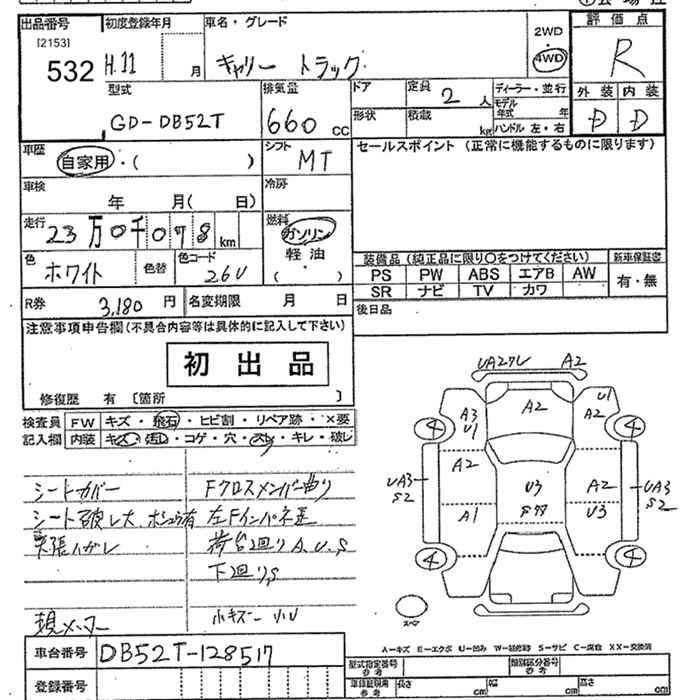 出品番号 初度登録年月 車名・グレード
[2153]
532
H.11 月
キャリー トラック
2WD
4WD
評価点
R
外装 内装
D D
型式
GD-DB52T
排気量
660 CC
ドア
定員 2 人
形状
積載 kg
ディーラー・並行
モデル年式 年
ハンドル 左・右
車歴
自家用・( )
シフト
MT
セールスポイント (正常に機能するものに限ります)
車検
年 月( 日)
冷房
走行
23万0千078 km
燃料
ガソリン
軽油
( )
色
ホワイト
色替
色コード
26U
装備品 (純正品に限り○をつけてください)
新車保証書
PS PW ABS エアB AW
有・無
SR ナビ TV カワ
R券 3,180 円 名変期限 月 日
後日品
注意事項申告欄(不具合内容等は具体的に記入して下さい)
初出品
修復歴 有 〔箇所 〕
検査員記入欄
FW キズ・飛石・ヒビ割・リペア跡・×要
内装 キズ・汚れ・コゲ・穴・スレ・キレ・破レ
シートカバー
Fクロスメンバー曲り
シート破レ大
左Fインパネ歪
天張ハガレ
荷台廻りA.U.S
下廻りS
現メーター
小キズ 小U
UA27U A2
A2
A3
U1
U1
A2
4 4
A2
UA3
S2
U3
A2
UA3
S2
A1
U3
4 4
スペア
A-キズ E-エクボ U-凹み W-補修跡 S-サビ C-腐食 XX-交換済
車台番号 DB52T-128517
登録番号
型式指定番号 参考
類別区分番号 参考
車検証期用 参考 長さ cm 幅 cm 高さ cm